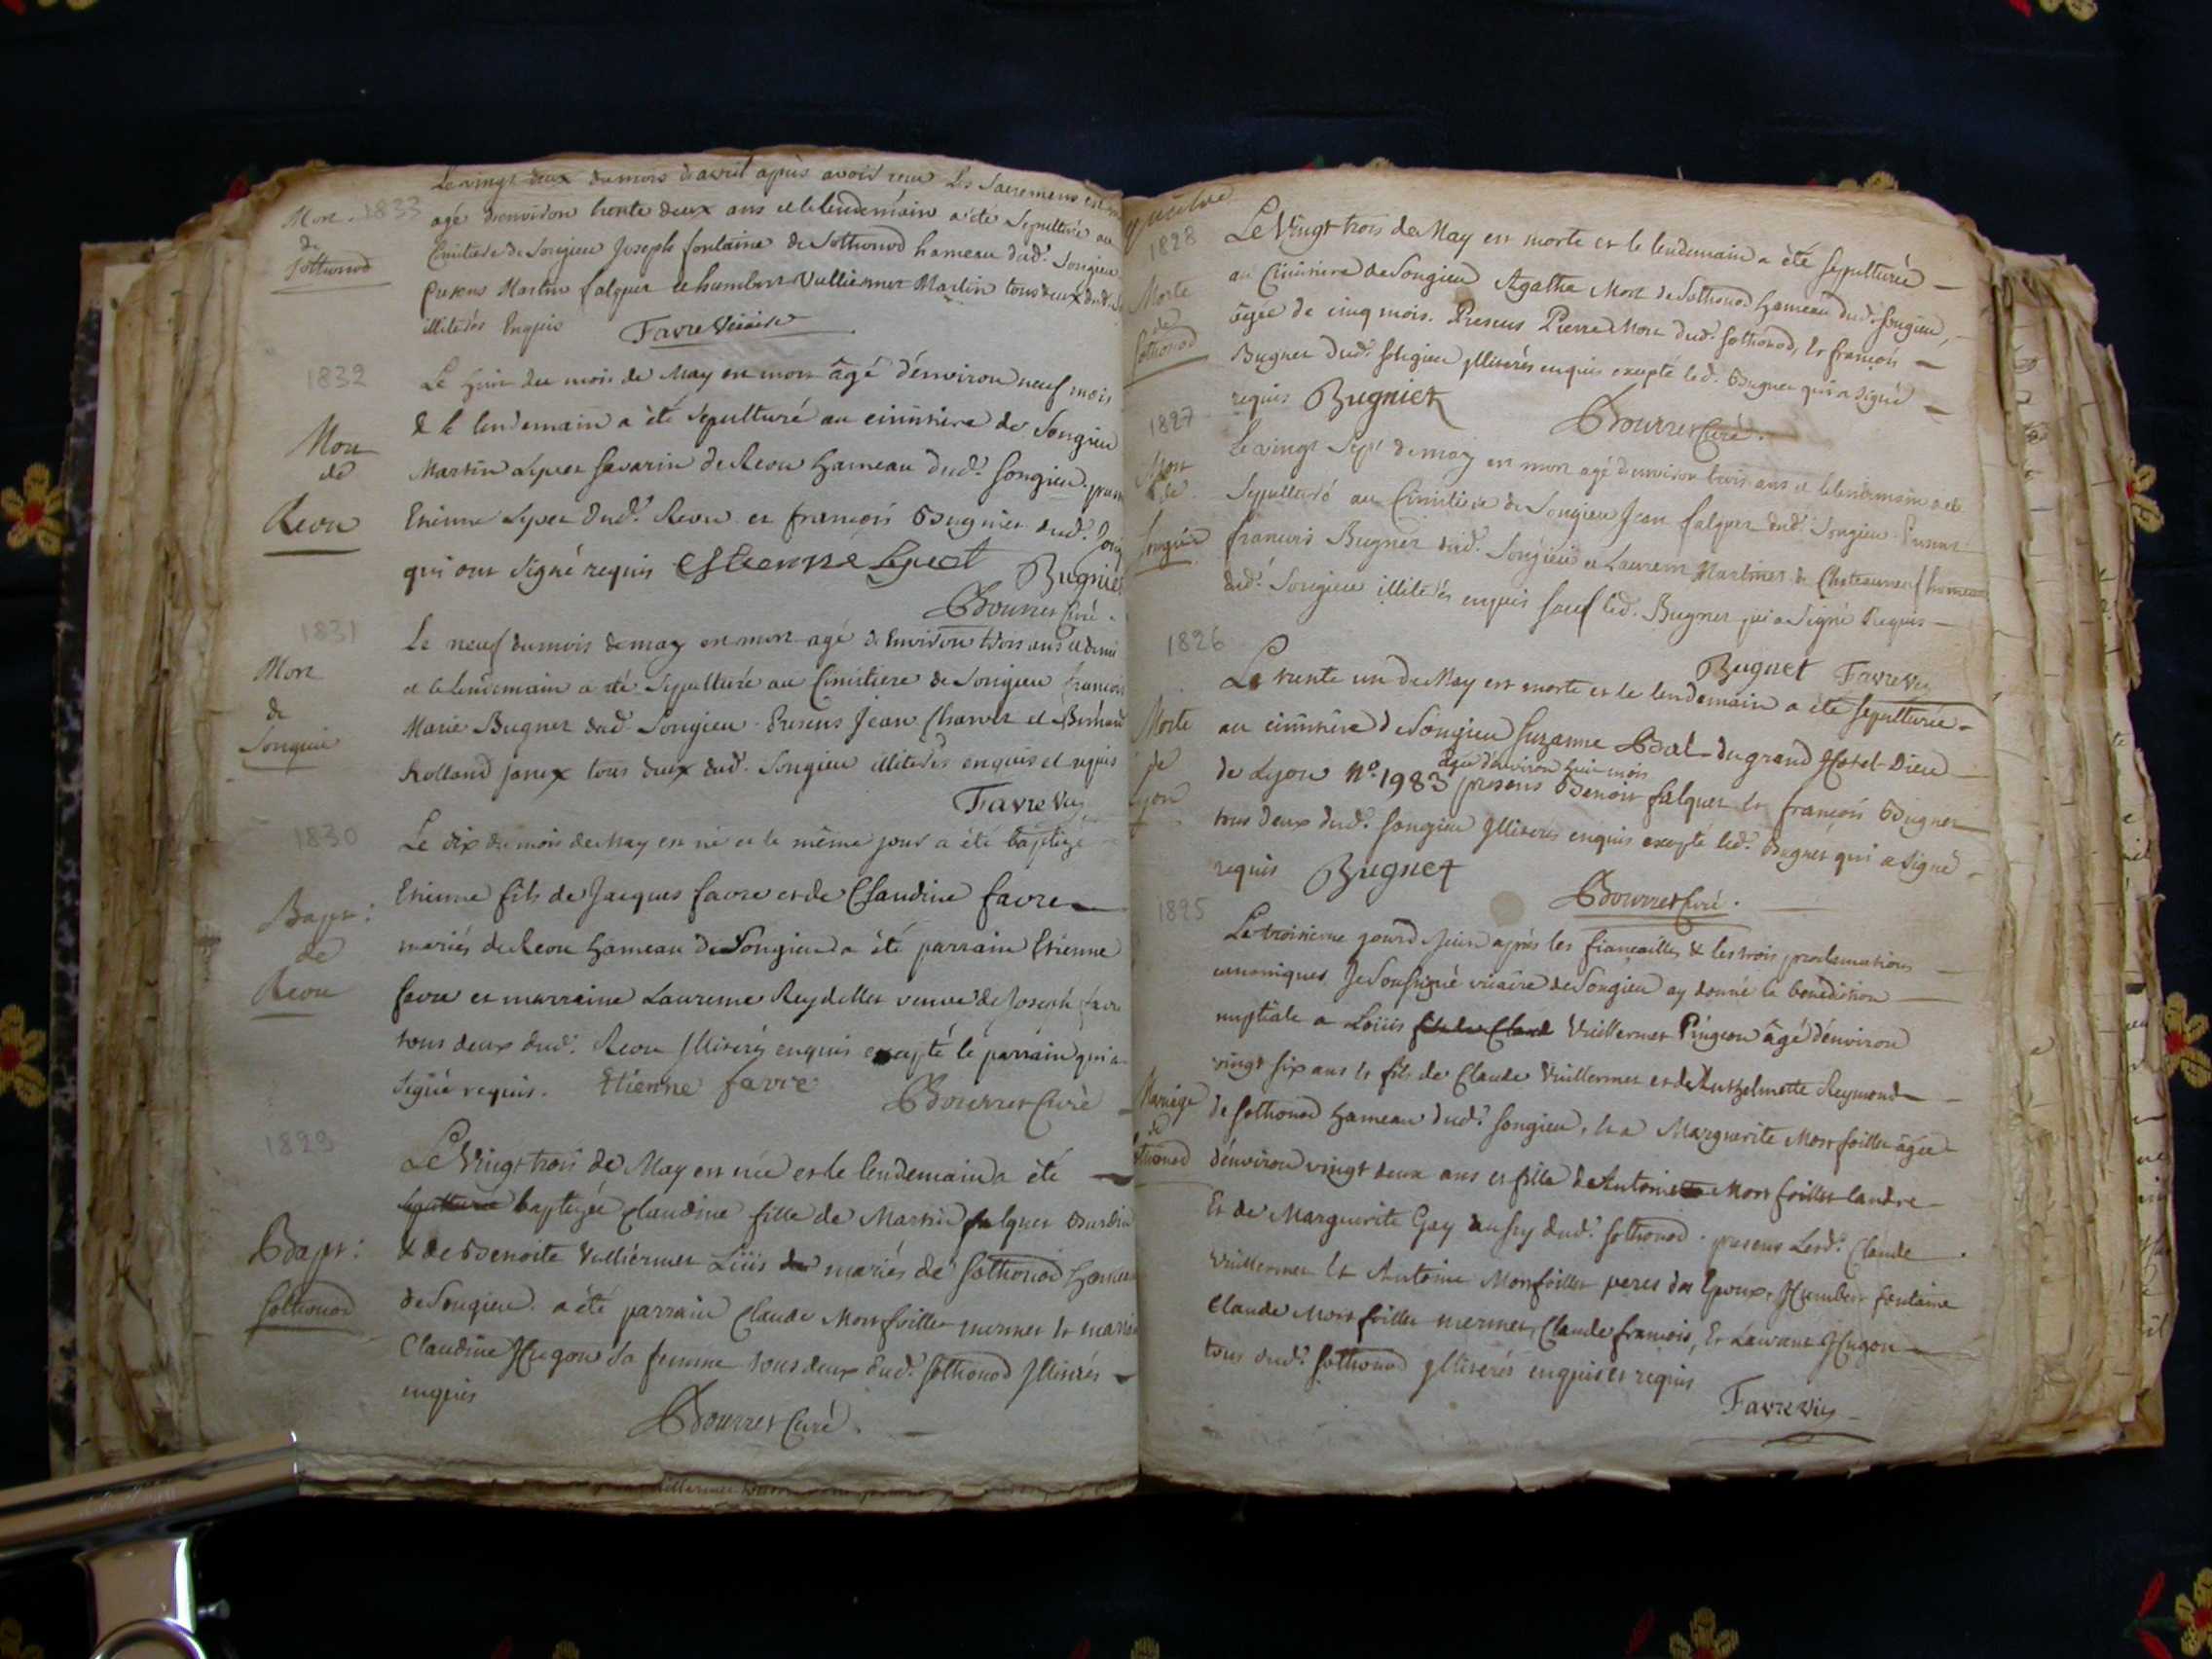 Le vingt deux du mois d'avril après avoir recu les sacremens est
Mort 1833
de
Sothonod
agé d'environ trente deux ans et le lendemain a été sepulturé au
Cimitiere de Songieu Joseph fontaine de Sothonod hameau dud. Songieu
presens Martin falquet et humbert Vulliermet Martin tous deux dud.
illiterés enquis Favre Vicaire
1832
Mort
de
Reou
Le huit du mois de May est mort âgé d'environ neuf mois
& le lendemain a été sepulturé au cimitiere de Songieu
Martin Lyvet Savarin de Reou hameau dud. Songieu.
Etienne Lyvet dud. Reou et françois Bugniet dud.
qui ont signé requis Estienne Bugniet
Bourret Curé.
1831
Mort
de
Songieu
Le neuf du mois de may est mort agé d'environ trois ans et demi
et le lendemain a été sepulturé au Cimitiere de Songieu francois
Marie Bugnet dud. Songieu. Presens Jean Charvet et Bernard
Rolland Janex tous deux dud. Songieu illiterés enquis et requis
Favre Vic
1830
Bapt:
de
Reou
Le dix du mois de May est né et le même jour a été baptizé
Etienne fils de Jacques favre et de Claudine favre
mariés de Reou hameau de Songieu a été parrain Etienne
favre et marraine Laurence Reydellet veuve de Joseph favre
tous deux dud. Reou Illiterés enquis excepté le parrain qui a
signé requis. Etienne favre Bourret Curé
1829
Bapt:
Sothonod
Le Vingt trois de May est née et le lendemain a été
sepulturée baptizée Claudine fille de Martin falquet Burdin
& de Benoite Vulliermet mariés de Sothonod hameau
de Songieu. a été parrain Claude Montfoillet mermet et
Claudine Hugon sa femme tous deux dud. Sothonod Illiterés
enquis
Bourret Curé.
1828
Morte
de
Sothonod
Le Vingt trois de May est morte et le lendemain a été sepulturée
au Cimitiere de Songieu Agathe Mort de Sothonod hameau dud. Songieu,
âgée de cinq mois. Presens Pierre Mort dud. Sothonod, et françois
Bugnet dud. Songieu Illiterés enquis excepté led. Bugnet qui a signé
requis Bugniet
Bourret Curé.
1827
Mort
de
Songieu
Le vingt sept de may est mort agé d'environ trois ans et le lendemain a été
sepulturé au Cimitiere de Songieu Jean falquet dud. Songieu. Presens
francois Bugnet dud. Songieu et Laurent Martinet de Chateauneuf hameau
dud. Songieu illiterés enquis sauf led. Bugnet qui a signé requis
Bugnet Favre Vic
1826
Morte
de
Lyon
Le trente un de May est morte et le lendemain a été sepulturée
au cimitiere de Songieu Suzanne du grand Hotel-Dieu
agée d'environ huit mois
de Lyon N.° 1983 / presens Benoit falquet et françois Bugnet
tous deux dud. Songieu Illiterés enquis excepté led. Bugnet qui a signé
requis Bugnet
Bourret Curé.
1825
Mariage
de
Sothonod
Le troisieme jour de Juin après les fiançailles & les trois proclamations
canoniques Je Soussigné vicaire de Songieu ay donné la benediction
nuptiale a Loüis fils de Claude Vuillermet Pingeon âgé d'environ
vingt six ans et fils de Claude Vuillermet et de Anthelmette Reymond
de Sothonod hameau dud. Songieu, et a Marguerite Montfoillet âgée
d'environ vingt deux ans et fille de Antoine Montfoillet landre
Et de Marguerite Gay aussy dud. Sothonod. presens Lesd. Claude
Vuillermet et Antoine Montfoillet peres des Epoux, Humbert fontaine
Claude Montfoillet mermet, Claude francois, Et Laurent Hugon
tous dud. Sothonod Illiterés enquis et requis
Favre Vic